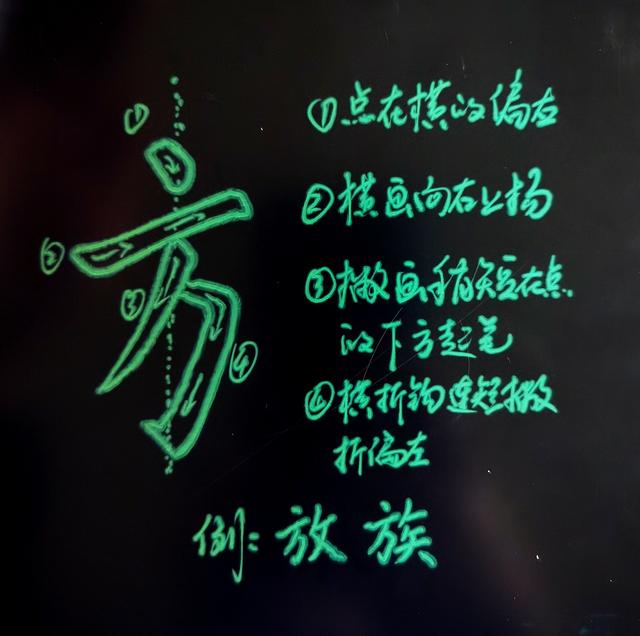 方
①点在横的偏左
②横画向右上扬
③撇画稍短在点
的下方起笔
④横折钩连短撇
折偏左
例:放 族